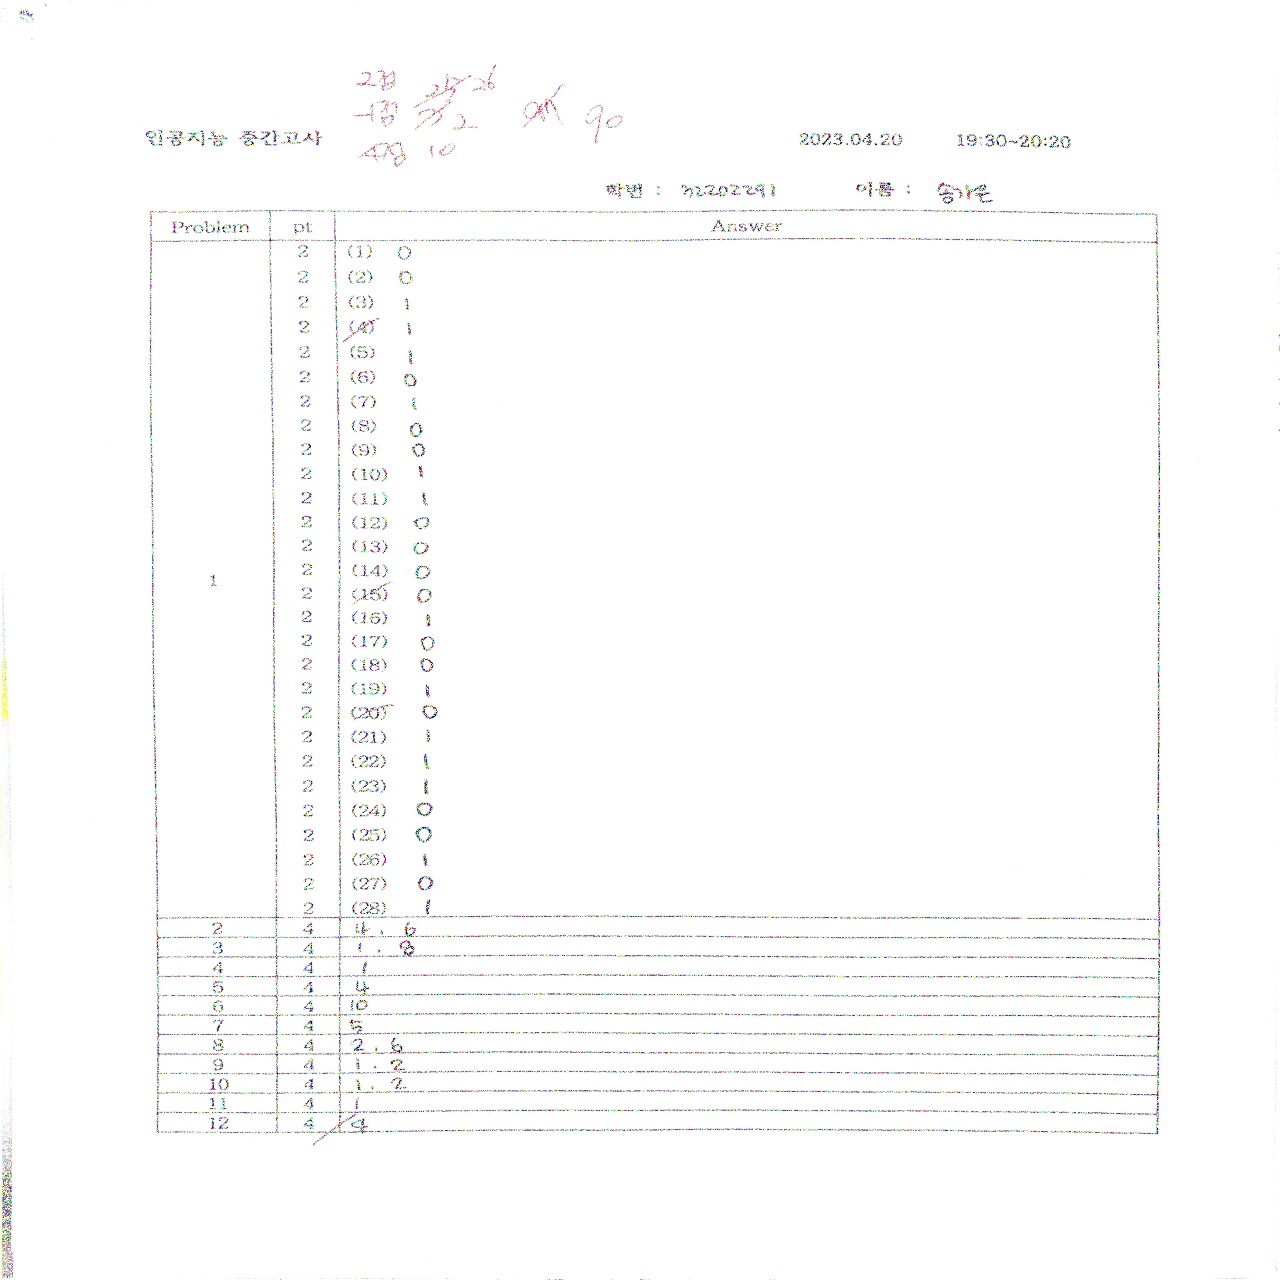 2점 25 26
-1점 2 90
4점 10
인공지능 중간고사 2023.04.20 19:30~20:20
학번 : 32202291 이름 : 송가은
Problem pt Answer
2 (1) 0
2 (2) 0
2 (3) 1
2 (4) 1
2 (5) 1
2 (6) 0
2 (7) 1
2 (8) 0
2 (9) 0
2 (10) 1
2 (11) 1
2 (12) 0
2 (13) 0
2 (14) 0
1
2 (15) 0
2 (16) 1
2 (17) 0
2 (18) 0
2 (19) 1
2 (20) 0
2 (21) 1
2 (22) 1
2 (23) 1
2 (24) 0
2 (25) 0
2 (26) 1
2 (27) 0
2 (28) 1
2 4 4. 6
3 4 1. 8
4 4 1
5 4 4
6 4 10
7 4 5
8 4 2. 6
9 4 1. 2
10 4 1. 2
11 4 1
12 4 9